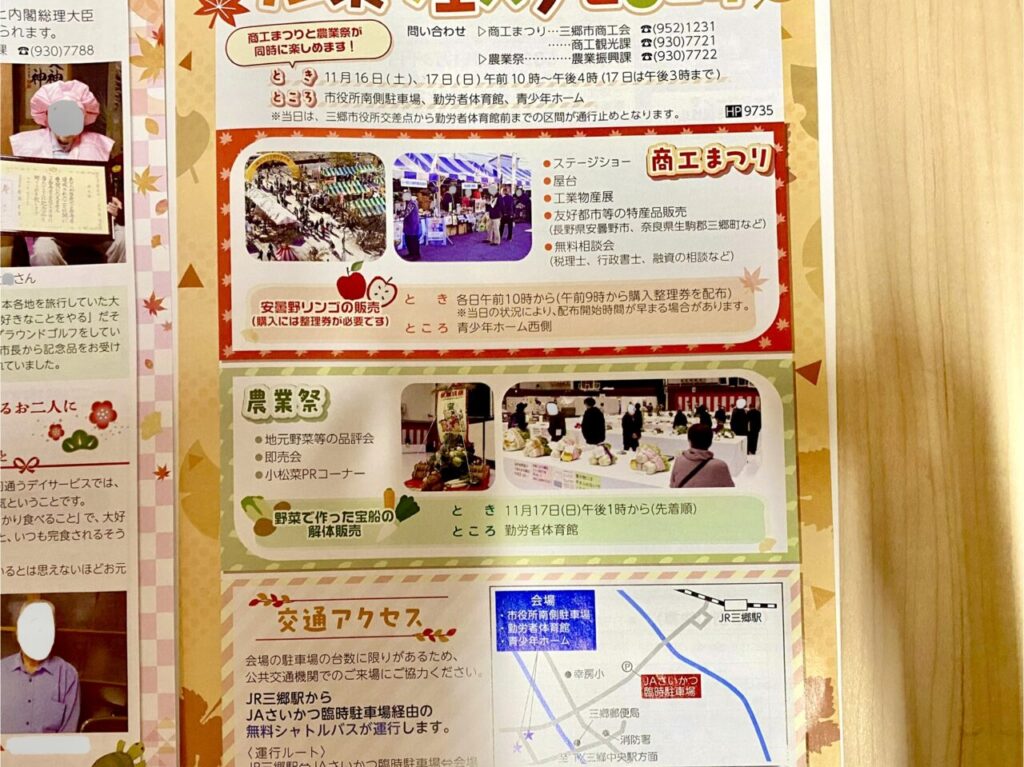 内閣総理大臣
られます。
課 ☎(930)7788
さん
本各地を旅行していた大
好きなことをやる」だそ
グラウンドゴルフをしてい
市長から記念品をお受け
れていました。
るお二人に
通うデイサービスでは、
気ということです。
かり食べること」で、大好
と、いつも完食されるそう
いるとは思えないほどお元
商工まつりと農業祭が
同時に楽しめます!
問い合わせ ▷商工まつり…三郷市商工会 ☎(952)1231
……商工観光課 ☎(930)7721
▷農業祭…………農業振興課 ☎(930)7722
とき 11月16日(土)、17日(日)午前10時～午後4時(17日は午後3時まで)
ところ 市役所南側駐車場、勤労者体育館、青少年ホーム
※当日は、三郷市役所交差点から勤労者体育館前までの区間が通行止めとなります。
HP 9735
商工まつり
●ステージショー
●屋台
●工業物産展
●友好都市等の特産品販売
(長野県安曇野市、奈良県生駒郡三郷町など)
●無料相談会
(税理士、行政書士、融資の相談など)
安曇野リンゴの販売
(購入には整理券が必要です)
とき 各日午前10時から(午前9時から購入整理券を配布)
※当日の状況により、配布開始時間が早まる場合があります。
ところ 青少年ホーム西側
農業祭
●地元野菜等の品評会
●即売会
●小松菜PRコーナー
野菜で作った宝船の
解体販売
とき 11月17日(日)午後1時から(先着順)
ところ 勤労者体育館
交通アクセス
会場の駐車場の台数に限りがあるため、
公共交通機関でのご来場にご協力ください。
JR三郷駅から
JAさいかつ臨時駐車場経由の
無料シャトルバスが運行します。
〈運行ルート〉
JR三郷駅⇔JAさいかつ臨時駐車場⇔会場
会場
・市役所南側駐車場
・勤労者体育館
・青少年ホーム
JR三郷駅
幸房小
P
JAさいかつ
臨時駐車場
三郷郵便局
消防署
至 TX三郷中央駅方面